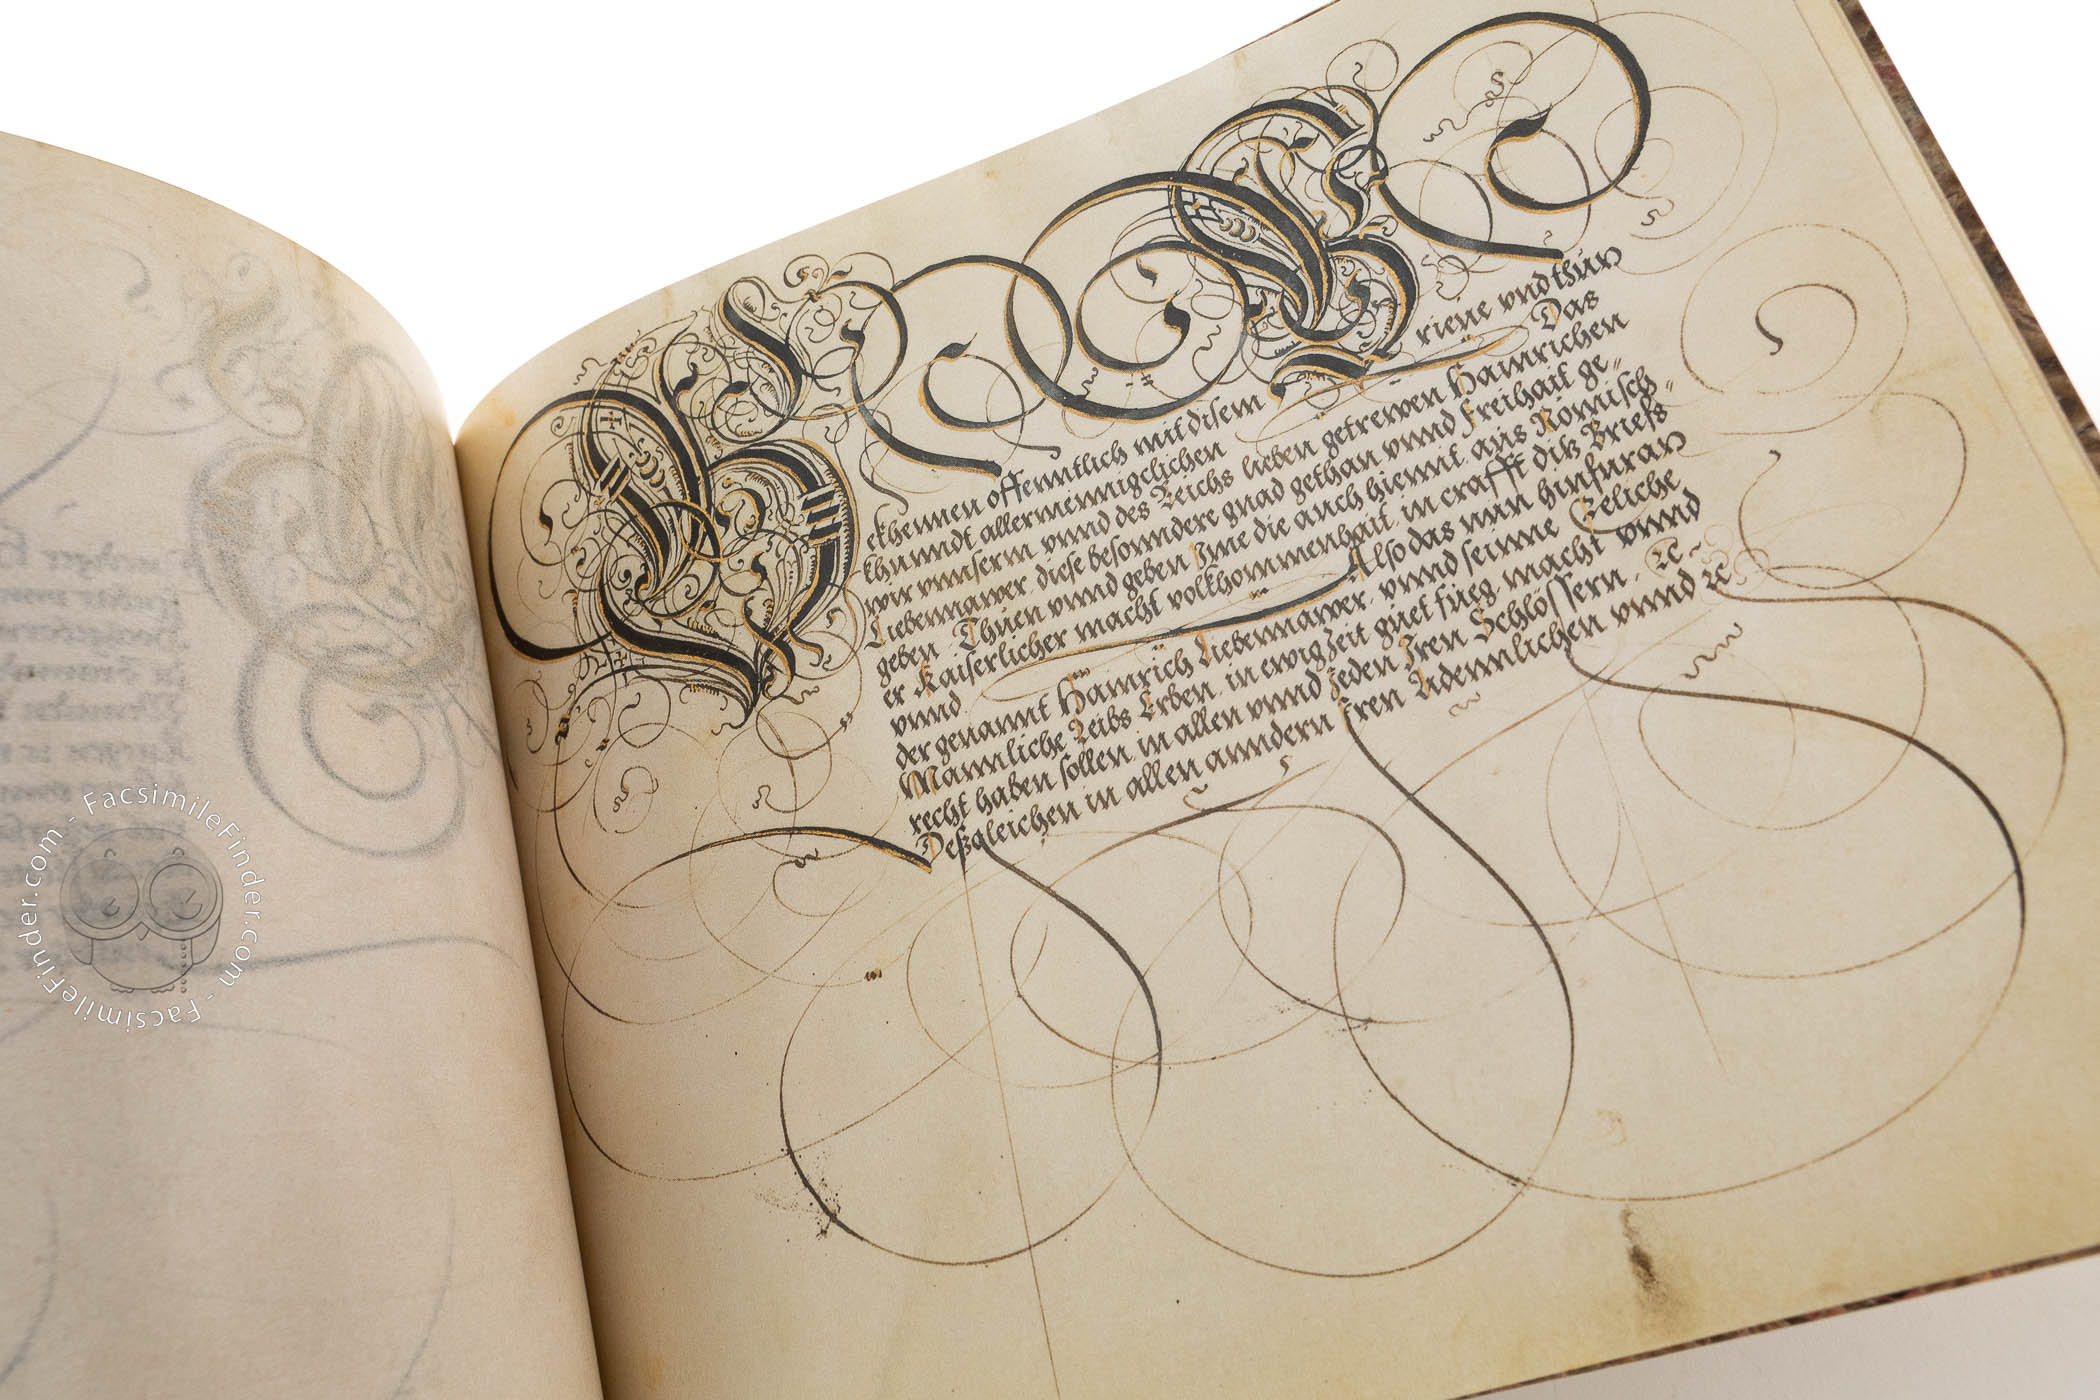 B B
ekhennen offenntlich mit disem Brieue vnd thun
khunndt allermennigclichen Das
wir vnnserm vnnd des Reichs lieben getrewen Hainrichen
Liebennawer, diese besonndere gnad gethan vnnd Freihait ge-
geben. Thuen vnnd geben Ime die auch hiemit aus Römisch-
er Kaiserlicher macht volkhommenhait, in crafft ditz Brieffs
vnnd Also das nun hinfuran
der genannt Hainrich Liebennawer, vnnd seinne Eeliche
Mannliche Leibs Erben, in ewig Zeit guet fueg, macht vnnd
recht haben sollen, in allen vnnd Jeden Iren Schlössern, A-
Deßgleichen in allen anndern Iren Adennlichen vnnd A
FacsimileFinder.com - FacsimileFinder.com -